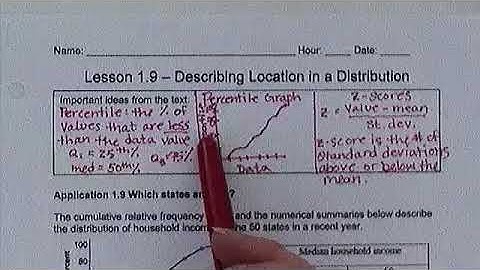 Name: Hour: Date:
Lesson 1.9 – Describing Location in a Distribution
Important ideas from the text:
Percentile: the % of
values that are less
than the data value
Q₁ = 25th%
Q₃ = 75%
med = 50th%
Percentile Graph
Data
z-scores
z = value - mean
st. dev.
z-score is the # of
standard deviations
above or below the
mean.
Application 1.9 Which states are
The cumulative relative frequency and the numerical summaries below describe
the distribution of household income the 50 states in a recent year.
100
80
Median household income